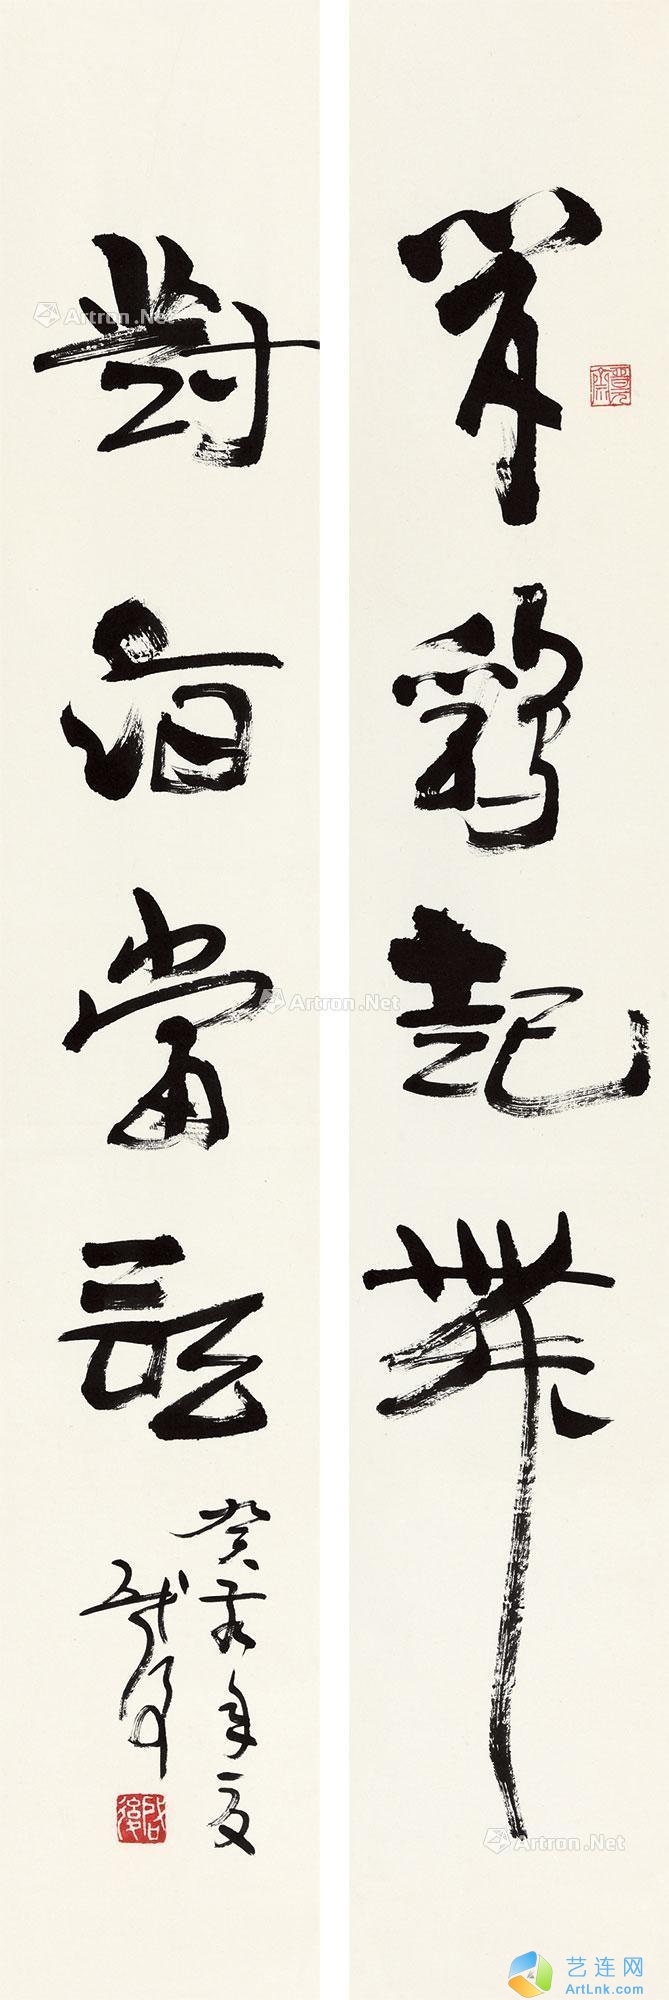 聞鷄起舞
對酒當歌
癸亥年夏
Artron.Net
Artron.Net
Artron.Net
艺连网
ArtLnk.com